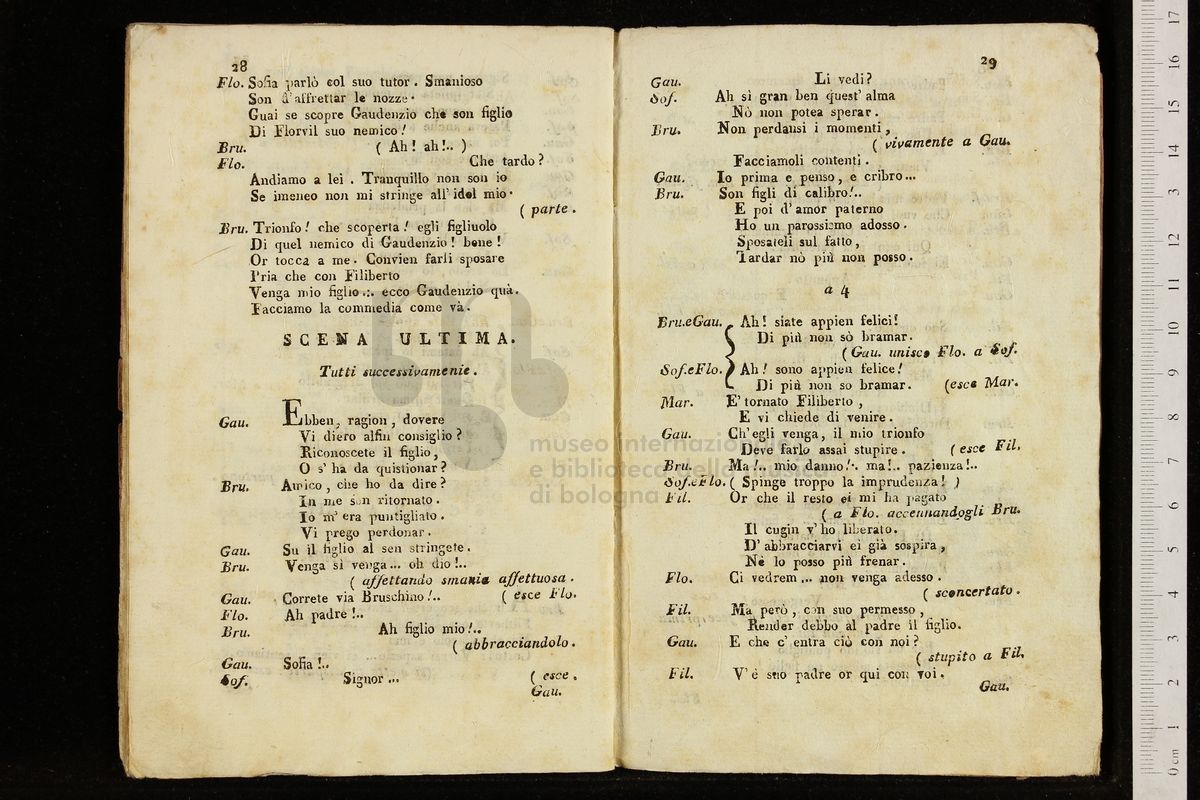 28
Flo. Sofia parlò col suo tutor. Smanioso
Son d'affrettar le nozze.
Guai se scopre Gaudenzio che son figlio
Di Florvil suo nemico!
Bru. ( Ah! ah!.. )
Flo. Che tardo?
Andiamo a lei. Tranquillo non son io
Se imeneo non mi stringe all'idol mio.
( parte.
Bru. Trionfo! che scoperta! egli figliuolo
Di quel nemico di Gaudenzio! bene!
Or tocca a me. Convien farli sposare
Pria che con Filiberto
Venga mio figlio.:. ecco Gaudenzio quà.
Facciamo la commedia come và.
SCENA ULTIMA.
Tutti successivamenie.
Gau. Ebben, ragion, dovere
Vi diero alfin consiglio?
Riconoscete il figlio,
O s'ha da quistionar?
Bru. Amico, che ho da dire?
In me son ritornato.
Io m'era puntigliato.
Vi prego perdonar.
Gau. Su il figlio al sen stringete.
Bru. Venga si venga... oh dio!..
( affettando smania affettuosa.
Gau. Correte via Bruschino!.. ( esce Flo.
Flo. Ah padre!..
Bru. Ah figlio mio!..
( abbracciandolo.
Gau. Sofia!..
Sof. Signor... ( esce.
Gau.
29
Gau. Li vedi?
Sof. Ah sì gran ben quest'alma
Nò non potea sperar.
Bru. Non perdansi i momenti,
( vivamente a Gau.
Facciamoli contenti.
Gau. Io prima e penso, e cribro...
Bru. Son figli di calibro!..
E poi d'amor paterno
Ho un parossismo adosso.
Sposateli sul fatto,
Tardar nò più non posso.
a 4
Bru.eGau. Ah! siate appien felici!
Di più non sò bramar.
( Gau. unisce Flo. a Sof.
Sof.eFlo. Ah! sono appien felice!
Di più non so bramar. (esce Mar.
Mar. E' tornato Filiberto,
E vi chiede di venire.
Gau. Ch'egli venga, il mio trionfo
Deve farlo assai stupire. ( esce Fil.
Bru. Ma!.. mio danno!.. ma!.. pazienza!..
Sof.eFlo. ( Spinge troppo la imprudenza! )
Fil. Or che il resto ei mi ha pagato
( a Flo. accennandogli Bru.
Il cugin v'ho liberato.
D'abbracciarvi ei già sospira,
Nè lo posso più frenar.
Flo. Ci vedrem... non venga adesso.
( sconcertato.
Fil. Ma però, con suo permesso,
Render debbo al padre il figlio.
Gau. E che c'entra ciò con noi?
( stupito a Fil.
Fil. V'è suo padre or qui con voi.
Gau.
museo internazionale
e biblioteca della musica
di bologna
0 cm 1 2 3 4 5 6 7 8 9 10 11 12 13 14 15 16 17